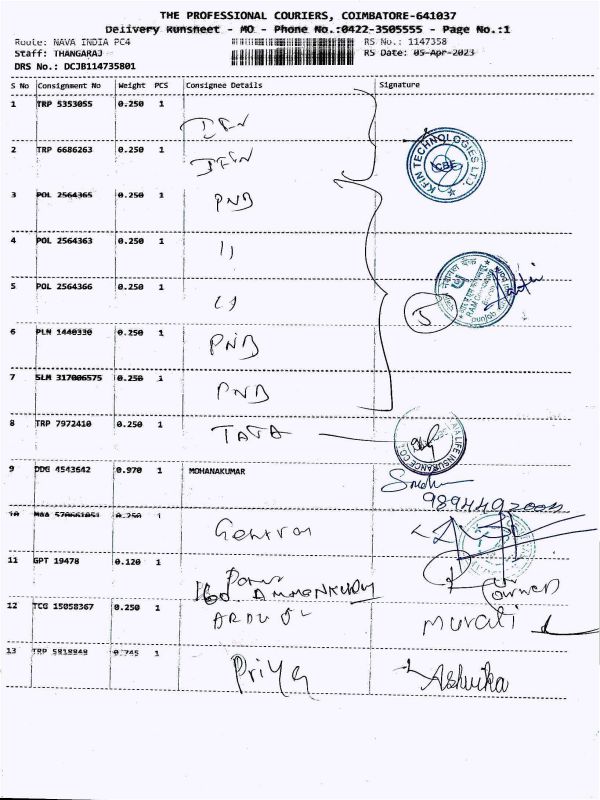 THE PROFESSIONAL COURIERS, COIMBATORE-641037
Delivery Runsheet - MO - Phone No.:0422-3505555 - Page No.:1
Route: NAVA INDIA PC4 RS No.: 1147358
Staff: THANGARAJ RS Date: 05-Apr-2023
DRS No.: DCJB114735801
S No Consignment No Weight PCS Consignee Details Signature
1 TRP 5353055 0.250 1
KFIN TECHNOLOGIES LTD. CBE
2 TRP 6686263 0.250 1
3 POL 2564365 0.250 1 PNB
4 POL 2564363 0.250 1 11
5 POL 2564366 0.250 1 11
5
6 PLN 1440330 0.250 1 PNB
7 SLM 317006575 0.250 1 PNB
8 TRP 7972410 0.250 1 TATA
LIFE INSURANCE CO
9 DDG 4543642 0.970 1 MOHANAKUMAR
10 MAA 570661051 0.250 1
11 GPT 19478 0.120 1
owner
12 TCG 15058367 0.250 1 Murali
13 TRP 5818848 0.745 1 Priya Ashvika